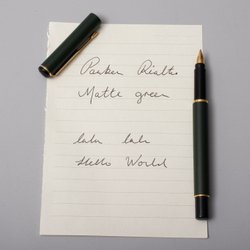 Parker Rialto
Matte green
lalu lalu
Hello World